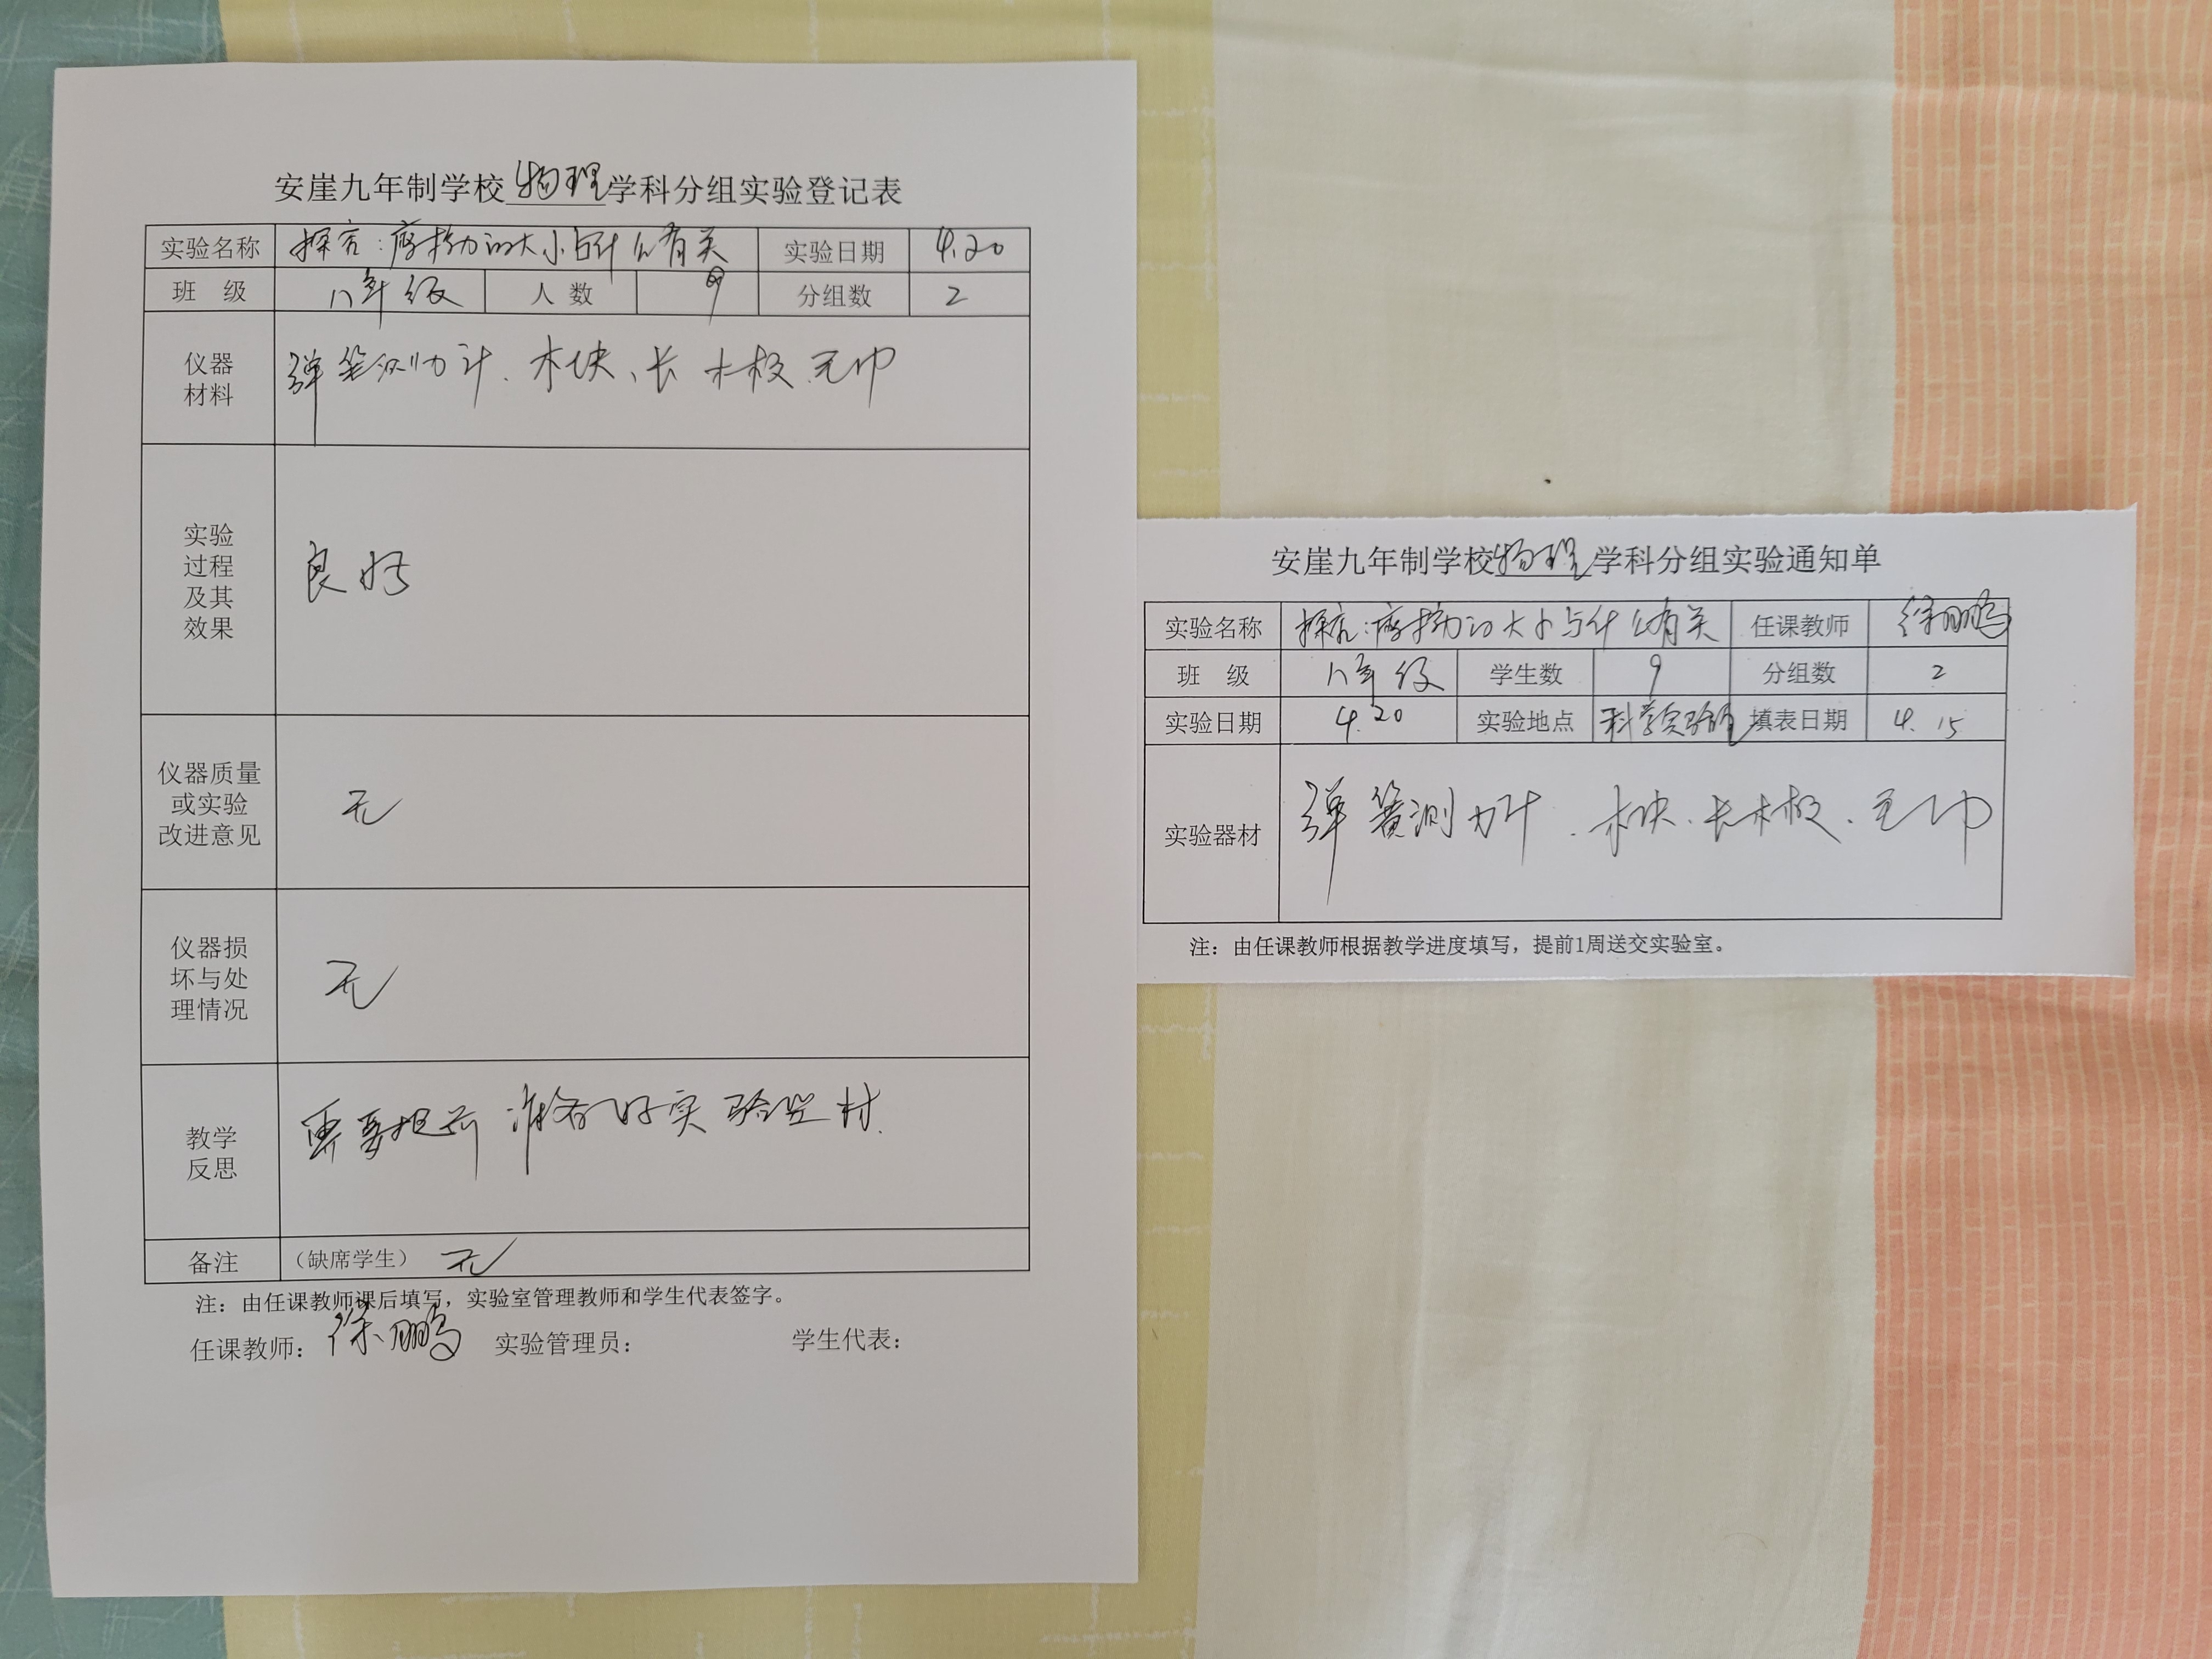 安崖九年制学校物理学科分组实验登记表
实验名称 探究:摩擦力的大小与什么有关 实验日期 4.20
班 级 八年级 人 数 9 分组数 2
仪器
材料
弹簧测力计、木块、长木板、毛巾
实验
过程
及其
效果
良好
仪器质量
或实验
改进意见
无
仪器损
坏与处
理情况
无
教学
反思
需要提前准备好实验器材.
备注 (缺席学生) 无
注:由任课教师课后填写,实验室管理教师和学生代表签字。
任课教师:徐鹏 实验管理员: 学生代表:
安崖九年制学校物理学科分组实验通知单
实验名称 探究:摩擦力的大小与什么有关 任课教师 徐鹏
班 级 八年级 学生数 9 分组数 2
实验日期 4.20 实验地点 科学实验室 填表日期 4.15
实验器材 弹簧测力计、木块、长木板、毛巾
注:由任课教师根据教学进度填写,提前1周送交实验室。